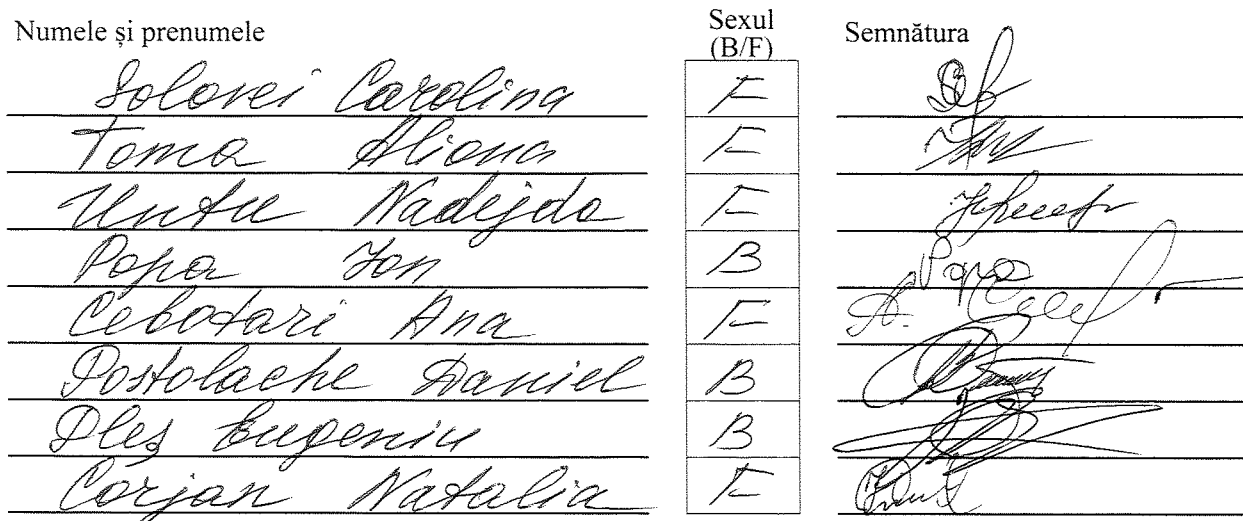 Numele și prenumele Sexul (B/F) Semnătura
Solovei Carolina F
Toma Aliona F
Untu Nadejda F
Popa Ion B Popa
Cebotari Ana F
Postolache Daniel B
Pleș Eugeniu B
Corjan Natalia F